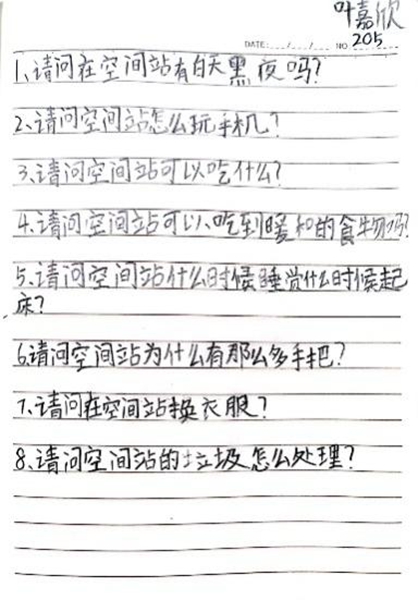 叶嘉欣
DATE: / / NO. 205
1、请问在空间站有白天黑夜吗?
2、请问空间站怎么玩手机?
3、请问空间站可以吃什么?
4、请问空间站可以吃到暖和的食物吗?
5、请问空间站什么时候睡觉什么时候起
床?
6、请问空间站为什么有那么多手把?
7、请问在空间站换衣服?
8、请问空间站的垃圾怎么处理?